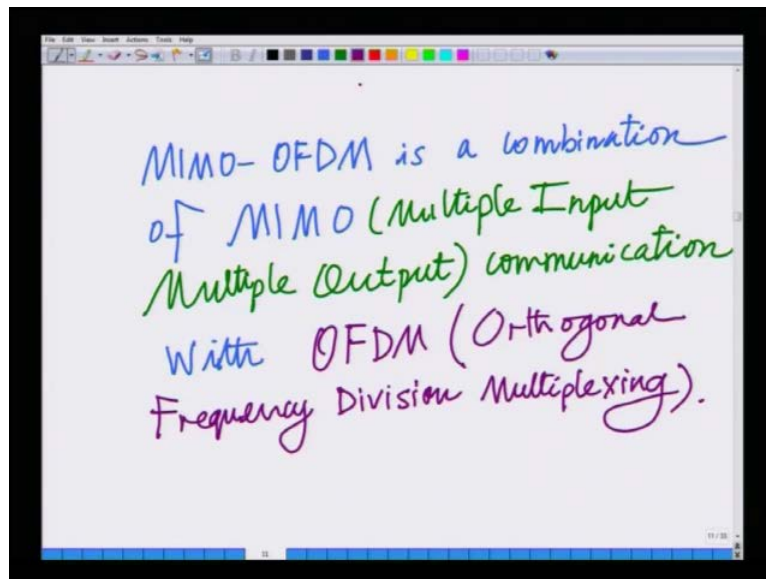 File Edit View Insert Actions Tools Help
MIMO-OFDM is a combination
of MIMO (Multiple Input
Multiple Output) communication
With OFDM (Orthogonal
Frequency Division Multiplexing).